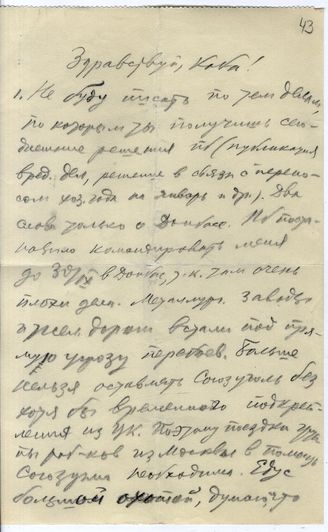 43
Здравствуй, Коба!
1. Не буду писать по тем делам,
по которым ты получишь сего-
дняшние решения ПБ (публикация
вред. дел, решение в связи с перено-
сом хоз. года на январь и др.). Два
слова только о Донбасе. ПБ поста-
новило командировать меня
до 30/IX в Донбас, т.к. там очень
плохи дела. Металлург. заводы
и жел. дороги встали под пря-
мую угрозу перебоев. Больше
нельзя оставлять Союзуголь без
хотя бы временного подкреп-
ления из ЦК. Поэтому поездка груп-
пы раб-ков из Москвы в помощь
Союзуглю необходима. Еду с
большой охотой, думаю, что